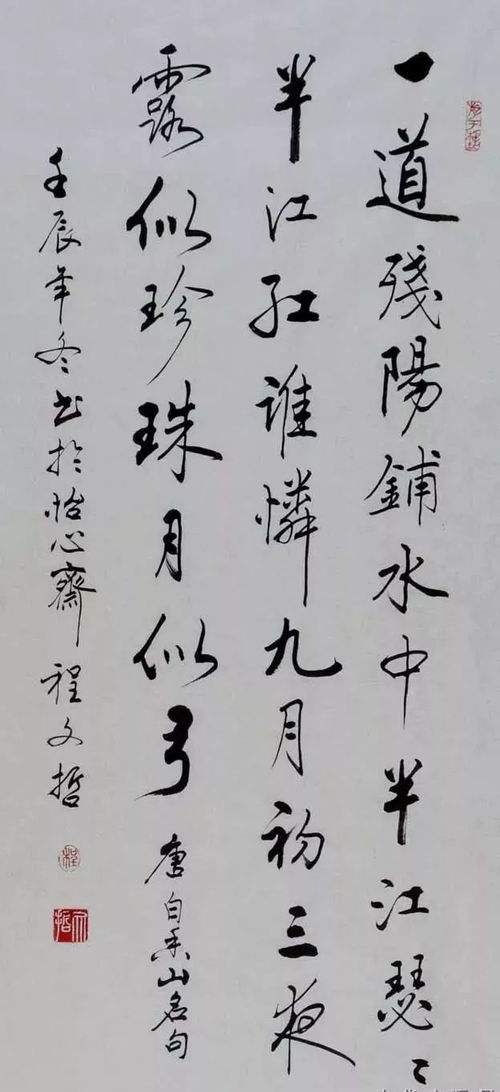 一道殘陽鋪水中半江瑟〻
半江紅誰憐九月初三夜
露似珍珠月似弓 唐白香山名句
壬辰年冬書於怡心齋 程文哲
程
文哲